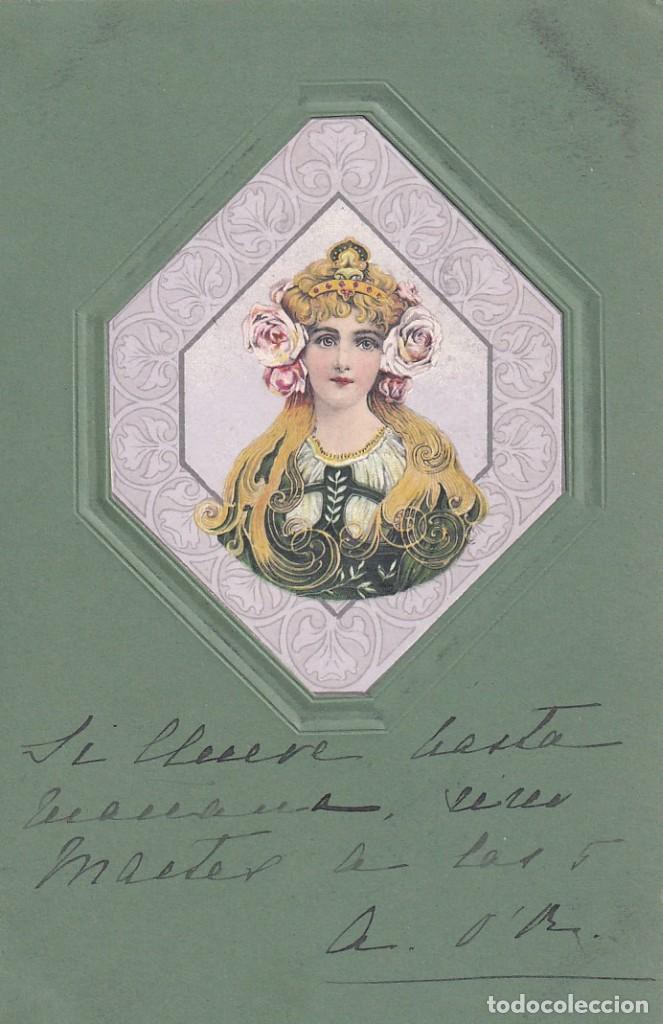 Si llueve hasta
mañana, sino
Martes a las 5
A. O'R.
todocoleccion